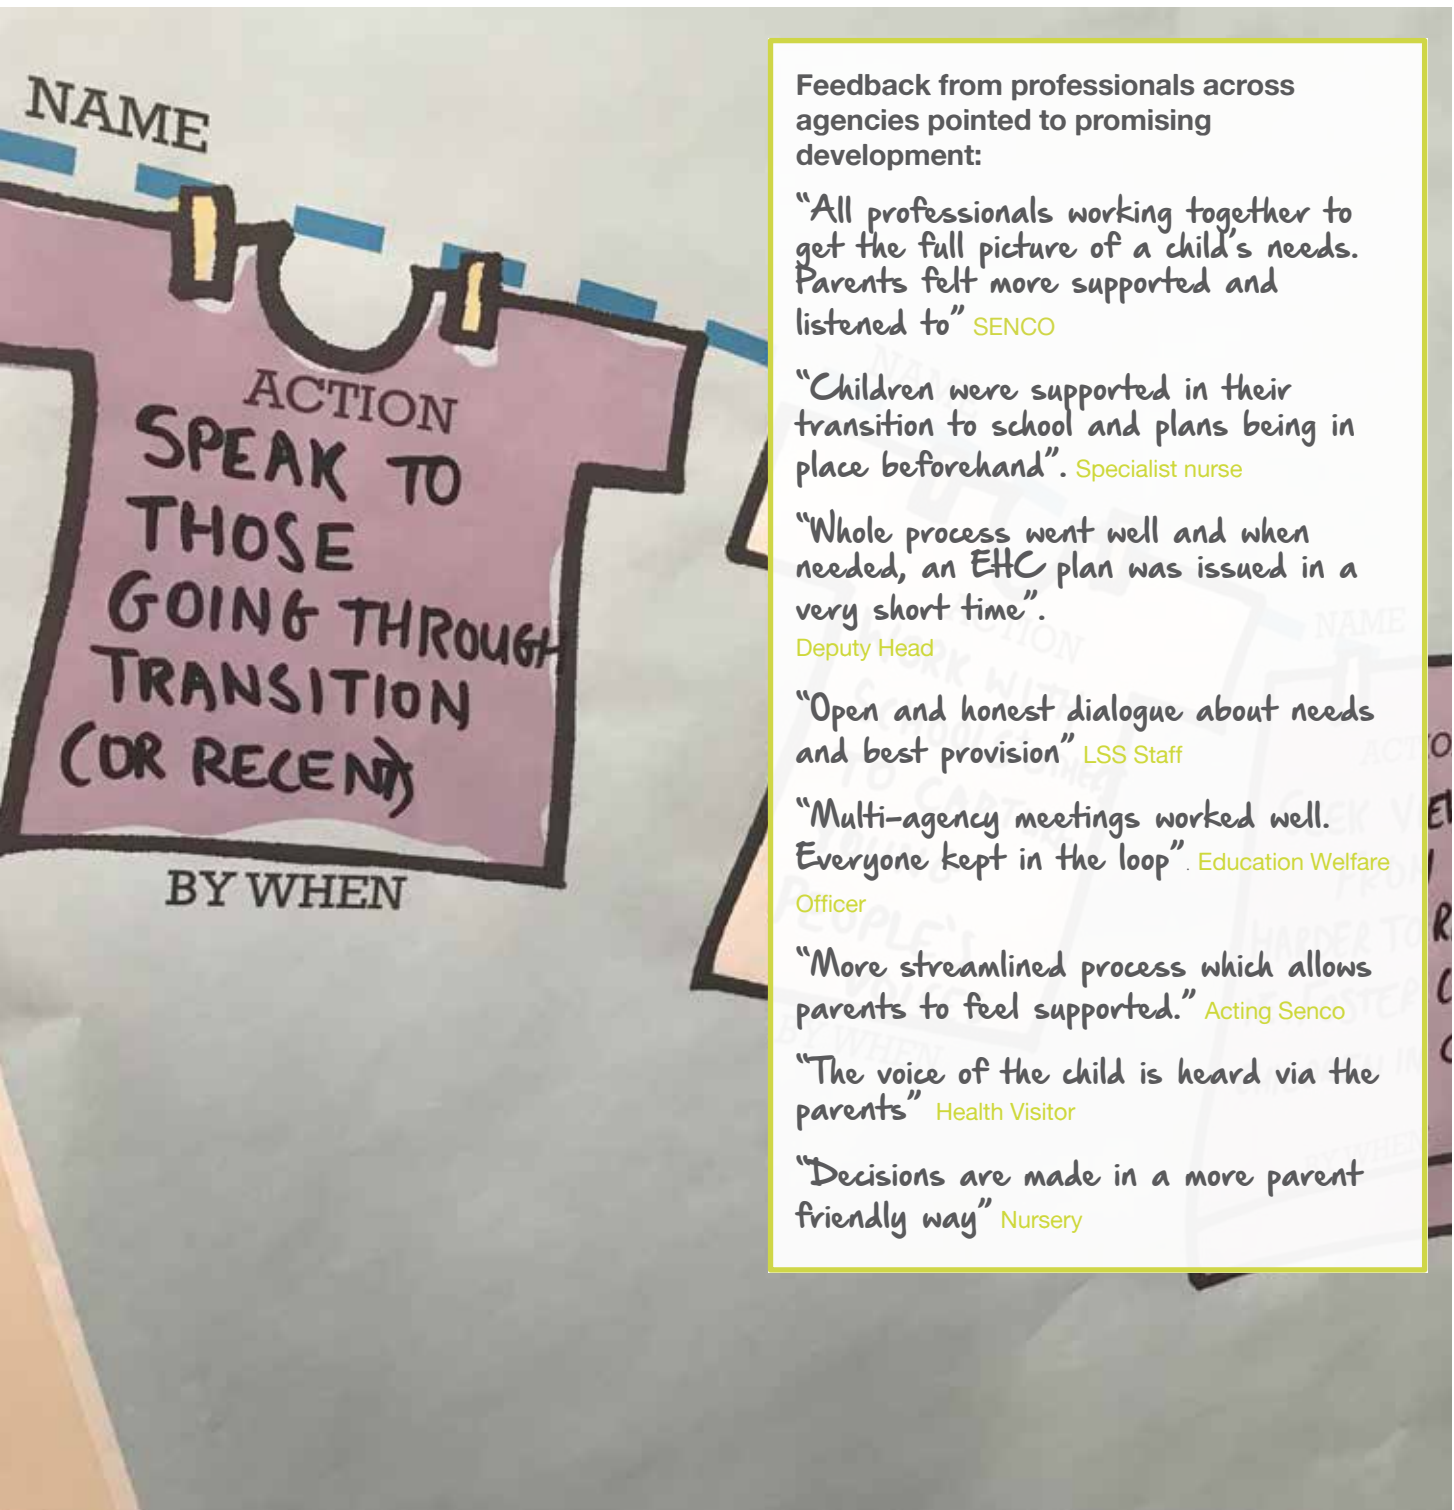 NAME
ACTION
SPEAK TO
THOSE
GOING THROUGH
TRANSITION
(OR RECENT)
BY WHEN
Feedback from professionals across
agencies pointed to promising
development:
“All professionals working together to
get the full picture of a child’s needs.
Parents felt more supported and
listened to” SENCO
“Children were supported in their
transition to school and plans being in
place beforehand”. Specialist nurse
“Whole process went well and when
needed, an EHC plan was issued in a
very short time”.
Deputy Head
“Open and honest dialogue about needs
and best provision” LSS Staff
“Multi-agency meetings worked well.
Everyone kept in the loop”. Education Welfare
Officer
“More streamlined process which allows
parents to feel supported.” Acting Senco
“The voice of the child is heard via the
parents” Health Visitor
“Decisions are made in a more parent
friendly way” Nursery
NAME
ACTION
WORK WITH
TO CAPTURE
YOUNG
PEOPLE'S
BY WHEN
NAME
ACTIO
SEEK VIEW
FROM
HARDER TO R
BY WHEN